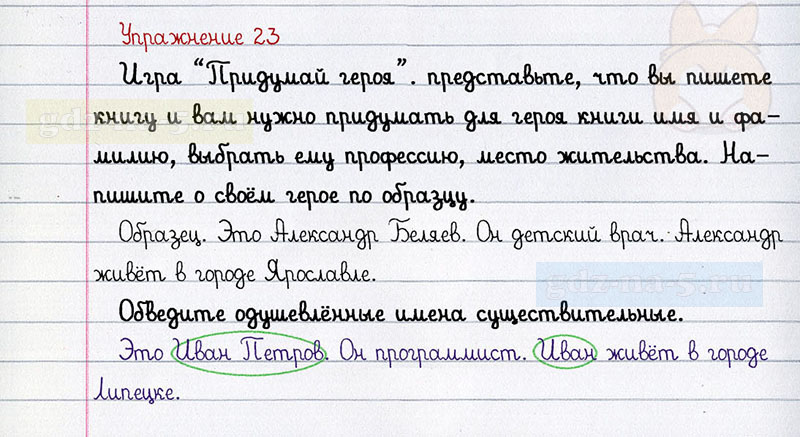 Упражнение 23
Игра "Придумай героя". представьте, что вы пишете
книгу и вам нужно придумать для героя книги имя и фа-
милию, выбрать ему профессию, место жительства. На-
пишите о своём герое по образцу.
Образец. Это Александр Беляев. Он детский врач. Александр
живёт в городе Ярославле.
gdz-na-5.ru
Обведите одушевлённые имена существительные.
Это Иван Петров. Он программист. Иван живёт в городе
Липецке.